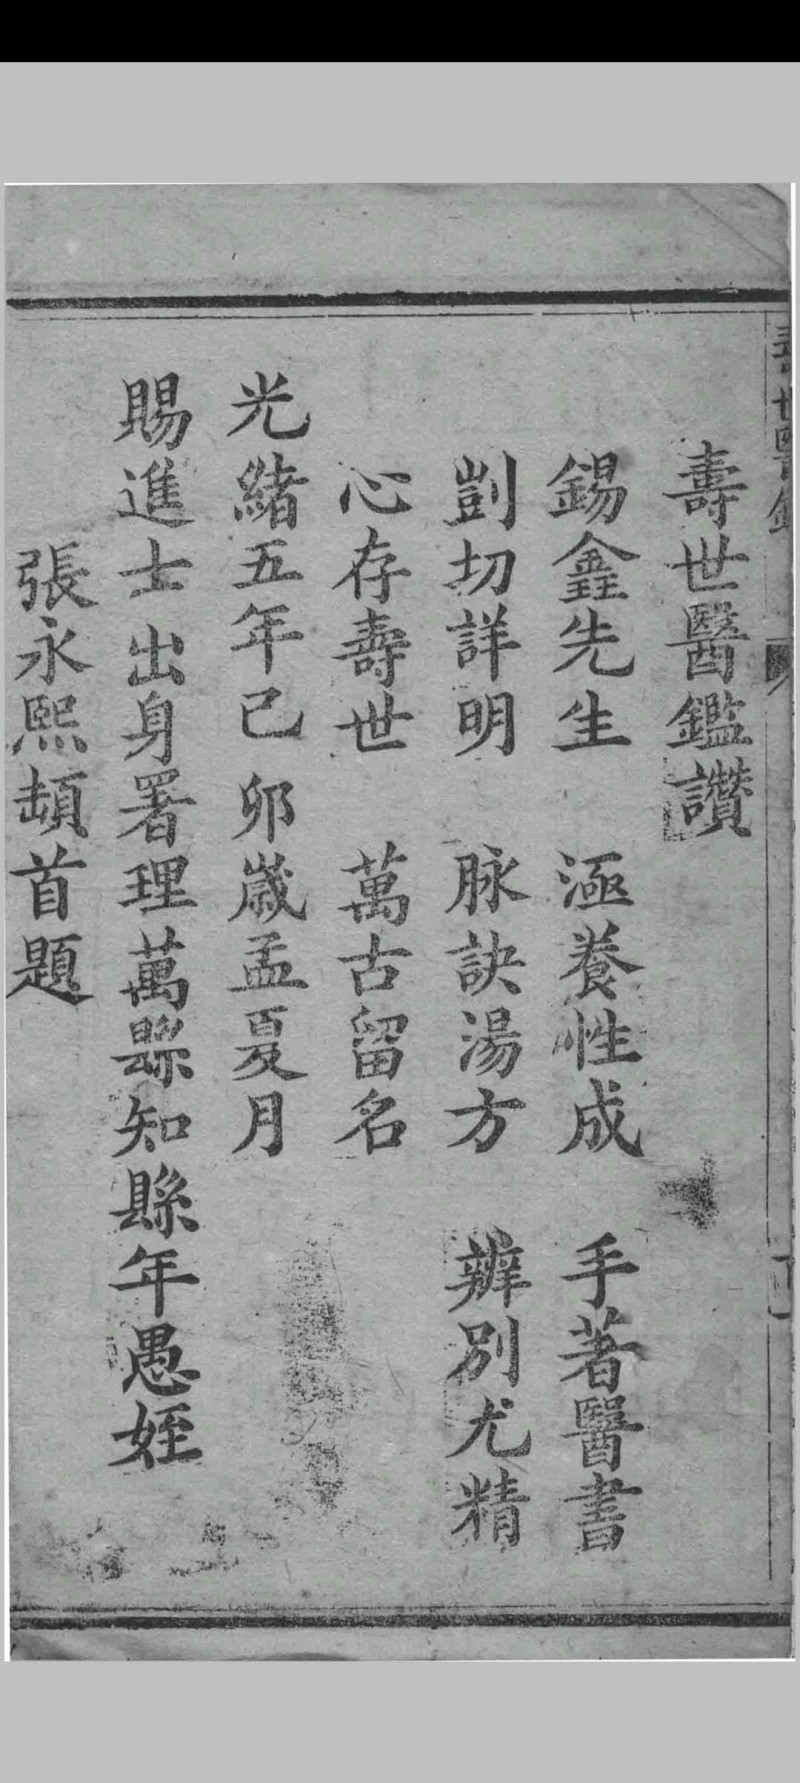 壽世醫鑑
壽世醫鑑讚
錫鑫先生 涵養性成 手著醫書
剴切詳明 脉訣湯方 辨別尤精
心存壽世 萬古留名
光緒五年己卯歲孟夏月
賜進士出身署理萬縣知縣年愚姪
張永熙頓首題